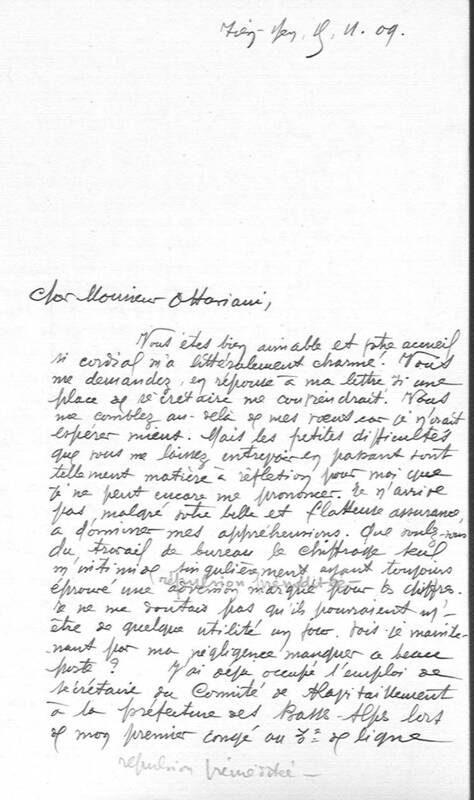 11. 09.
Cher Monsieur Ottaviani,
Vous êtes bien aimable et votre accueil
si cordial m'a littéralement charmé. Vous
me demandez, en réponse à ma lettre si une
place de secrétaire me conviendrait. Vous
me comblez au-delà de mes vœux car je n'osais
espérer mieux. Mais les petites difficultés
que vous me laissez entrevoir en passant sont
tellement matière à réflexion pour moi que
je ne peux encore me prononcer. Je n'arrive
pas malgré votre belle et flatteuse assurance,
à dominer mes appréhensions. Que voulez-vous
du travail de bureau le chiffrage seul
m'intimide singulièrement ayant toujours
répulsion préméditée
éprouvé une aversion marquée pour les chiffres.
Je ne me doutais pas qu'ils pourraient m'-
être de quelque utilité un jour. Dois-je mainte-
nant par ma négligence manquer ce beau
poste ? J'ai déjà occupé l'emploi de
secrétaire du Comité de Ravitaillement
à la préfecture des Basses-Alpes lors
de mon premier congé au de ligne
répulsion préméditée -